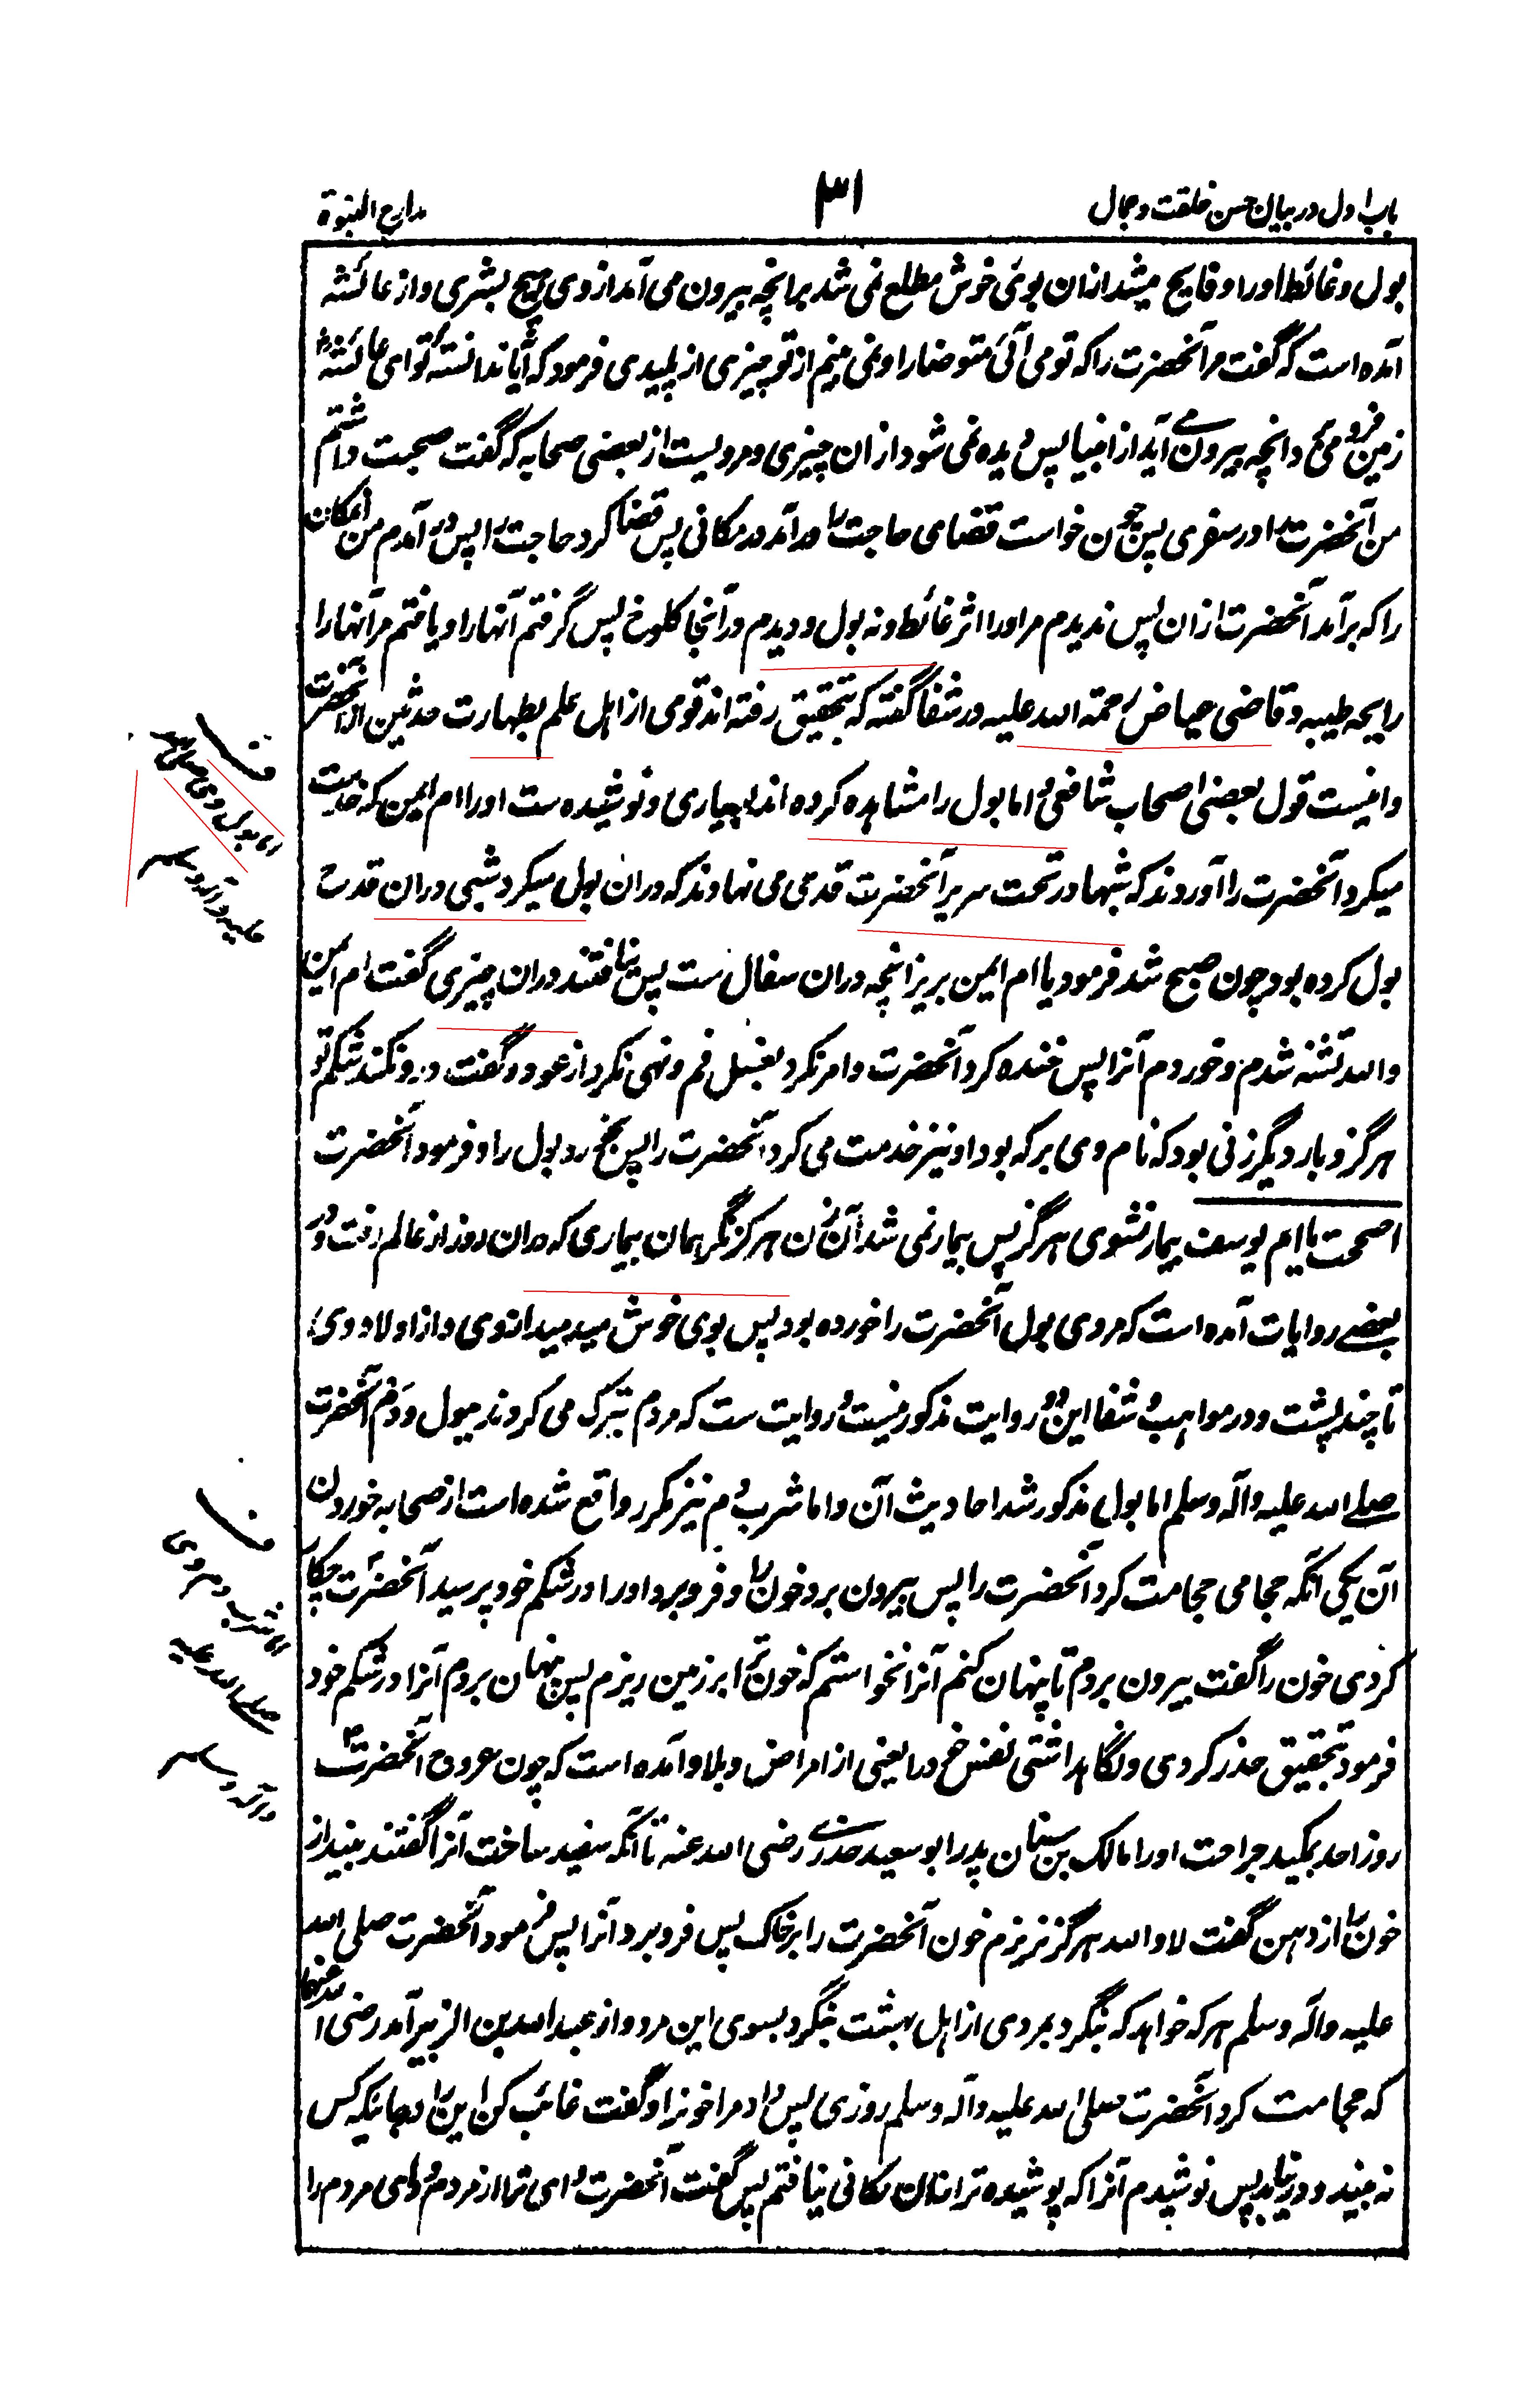 باب اول در بیان حسن خلقت و جمال
۳۱
مدارج النبوة
بول و غائط او را و فایح میشد ازان بوئی خوش مطلع نمی شد برانچه بیرون می آمد از وی هیچ بشری و از عائشه
آمده است که گفت مر آنحضرت را که تو می آئی متوضا را و نمی بینم از تو چیزی از پلیدی فرمود که آیا ندانسته تو ای عائشه
زمین فرو می دانچه بیرون می آید از انبیا پس دیده نمی شود ازان چیزی و مرویست از بعضی صحابه که گفت صحبت داشتم
من آنحضرت را در سفری پس چون خواست قضای حاجت را درآمد در مکانی پس قضا کرد حاجت را پس در آمدم من آن مکان
را که برآمد آنحضرت ازان پس ندیدم مر او را اثر غائط و نه بول و دیدم در آنجا کلوخ پس گرفتم آنها را و یافتم مر آنها را
رایحه طیبه و قاضی عیاض رحمته الله علیه در شفا گفته که بتحقیق رفته اند قومی از اهل علم بطهارت حدثین از آنحضرت
و اینست قول بعضی اصحاب شافعی و اما بول را مشاهده کرده اند بسیاری و نوشیده ست او را ام ایمن که خدمت
میکرد آنحضرت را آوردند که شبها در تحت سریر آنحضرت قدحی می نهادند که دران بول میکرد شبی دران قدح
بول کرده بود چون صبح شد فرمود یا ام ایمن بریز انچه دران سفال ست پس نیافتند دران چیزی گفت ام ایمن
والله تشنه شدم و خوردم آنرا پس خنده کرد آنحضرت و امر نکرد بغسل فم و نهی نکرد از عود و گفت درد نکند شکم تو
هرگز و بار دیگر زنی بود که نام وی برکه بود او نیز خدمت می کرد آنحضرت را پس بخورد بول را و فرمود آنحضرت
اصححت یا ام یوسف بیمار نشوی هرگز پس بیمار نمی شد آن زن هرگز مگر همان بیماری که دران روز از عالم رفت و در
بعضے روایات آمده است که مردی بول آنحضرت را خورده بود پس بوی خوش میدمید از وی و از اولاد وی
تا چند پشت و در مواهب و شفا این دو روایت مذکور نیست و روایت ست که مردم تبرک می کردند ببول و دم آنحضرت
صلے الله علیه وآله وسلم اما بول مذکور شد احادیث آن و اما شرب دم نیز مکرر واقع شده است از صحابه خوردن
آن یکی آنکه حجامی حجامت کرد آنحضرت را پس بیرون برد خون را و فرو برد او را در شکم خود پرسید آنحضرت چکار
کردی خون را گفت بیرون بردم تا پنهان کنم آنرا نخواستم که خون ترا بر زمین ریزم پس پنهان بردم آنرا در شکم خود
فرمود بتحقیق حذر کردی و نگاهداشتی نفس خود را یعنی از امراض و بلا و آمده است که چون مجروح آنحضرت
روز احد بمکید جراحت او را مالک بن سنان پدر ابو سعید خدری رضی الله عنه تا آنکه سفید ساخت آنرا گفتند بینداز
خون را از دهن گفت لا والله هرگز نریزم خون آنحضرت را بر خاک پس فرو برد آنرا پس فرمود آنحضرت صلی الله
علیه وآله وسلم هر که خواهد که بنگرد بمردی از اهل بهشت بنگرد بسوی این مرد و از عبدالله بن الزبیر آمد رضی الله عنهما
که حجامت کرد آنحضرت صلی الله علیه وآله وسلم روزی پس داد مرا خون را و گفت غائب کن این را در جائیکه کس
نه بیند و در نیابد پس نوشیدم آنرا که پوشیده تر ازان مکانی نیافتم پس گفت آنحضرت وای ترا از مردم و وای مردم را
بول وی صلی الله
علیه وآله وسلم
شرب دم وی
صلے الله علیه
وآله وسلم